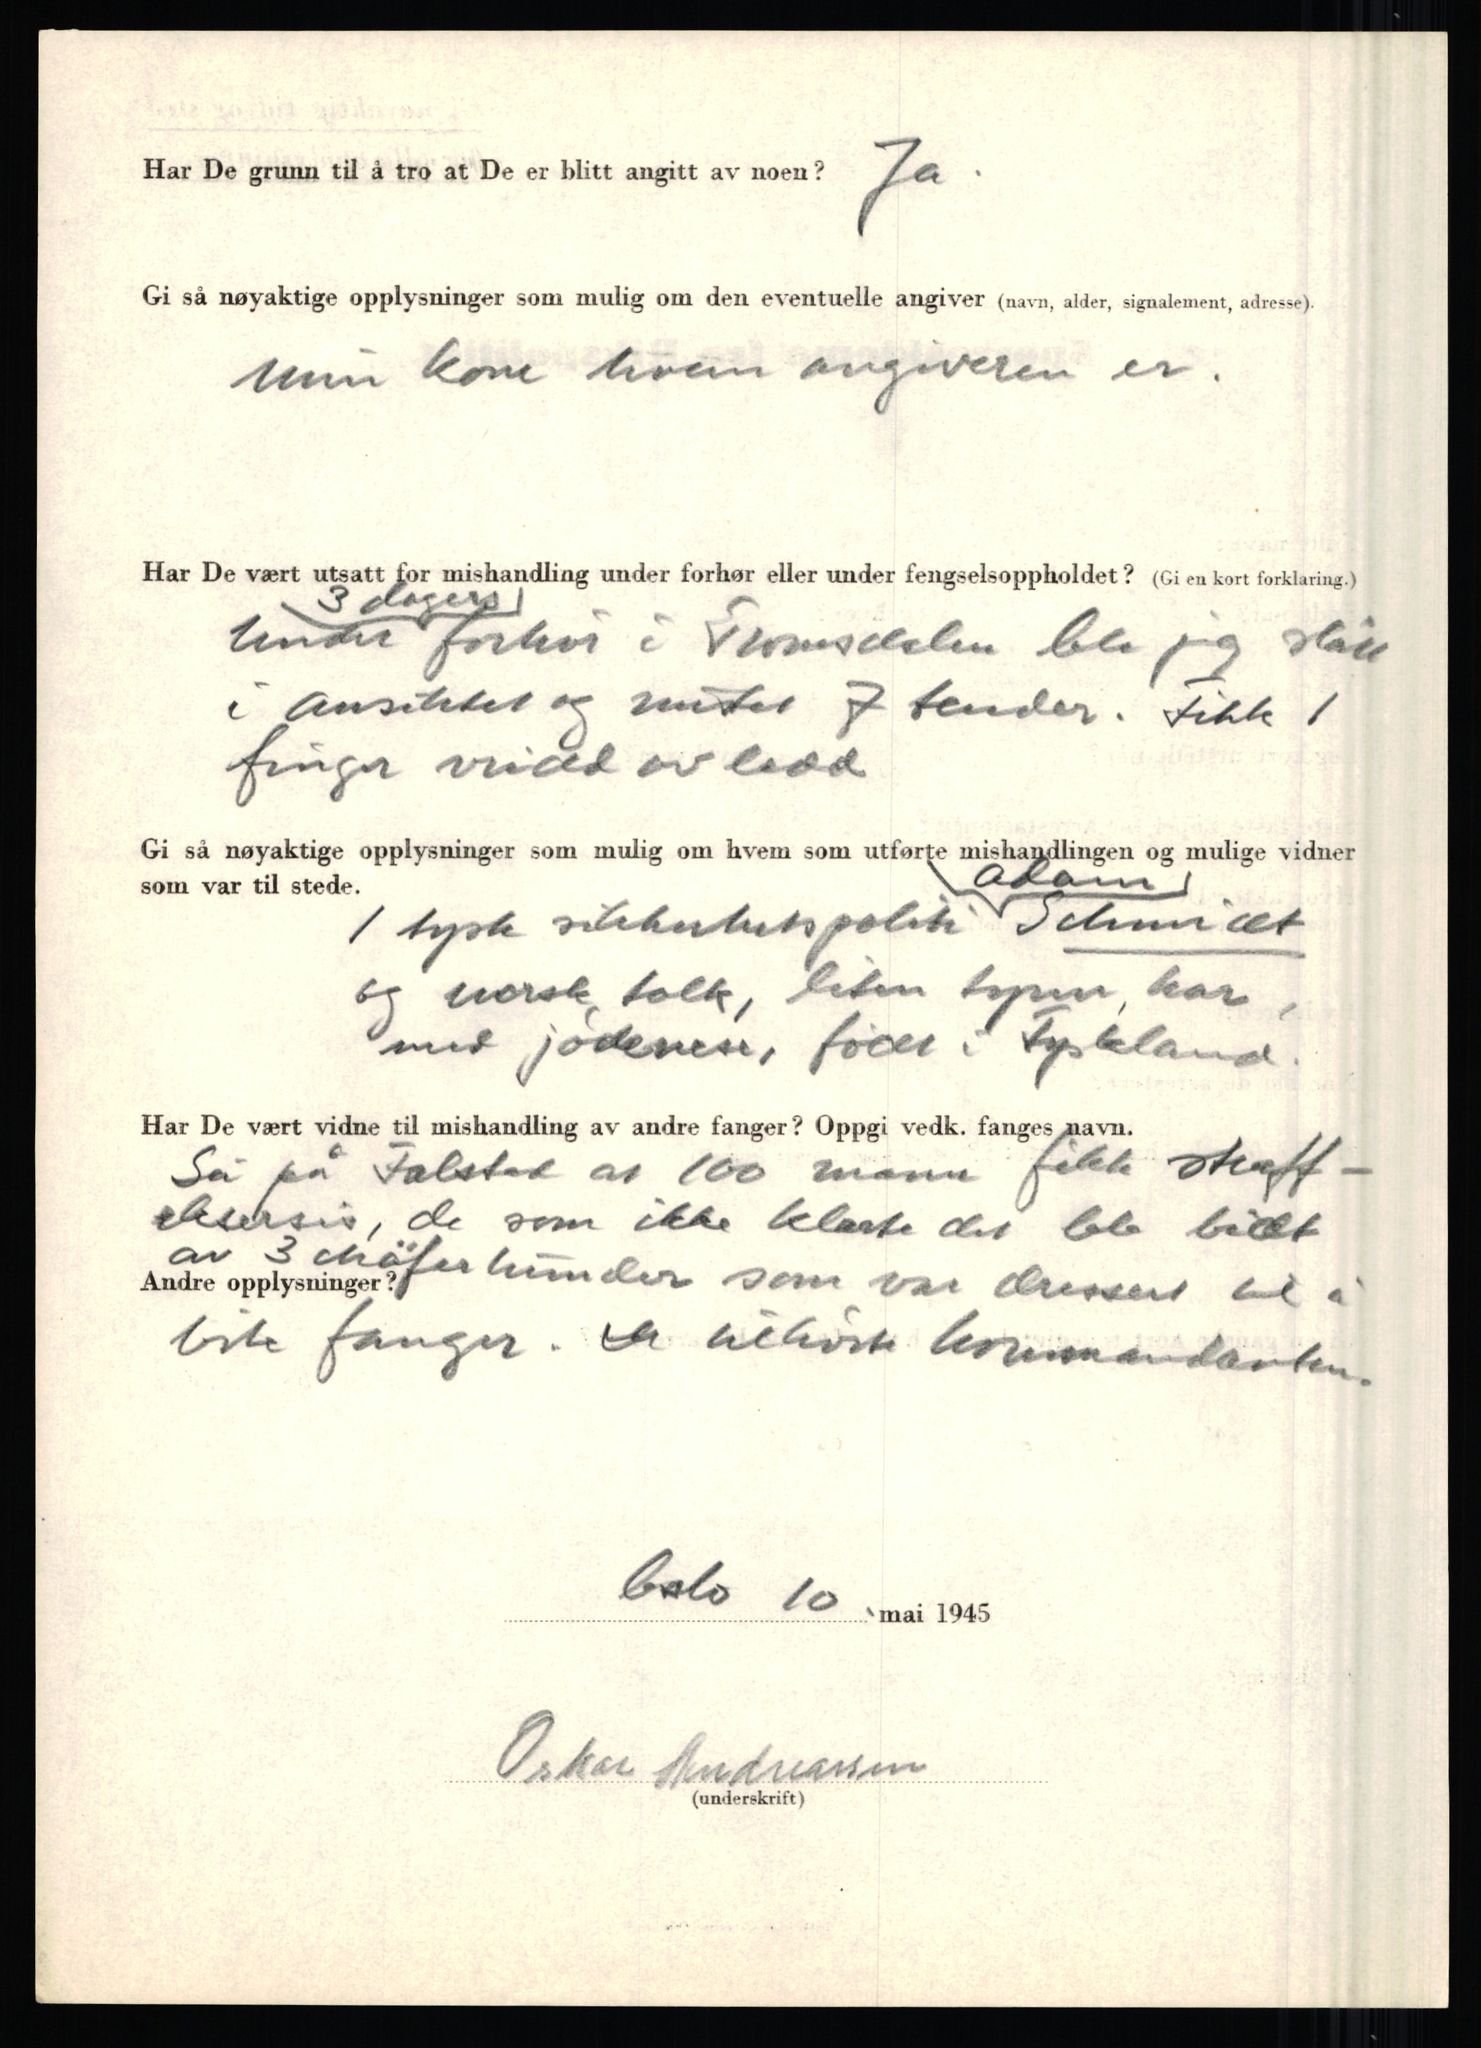 Har De grunn til å tro at De er blitt angitt av noen? Ja.
Gi så nøyaktige opplysninger som mulig om den eventuelle angiver (navn, alder, signalement, adresse).
Min kone hvem angiveren er.
Har De vært utsatt for mishandling under forhør eller under fengselsoppholdet? (Gi en kort forklaring.)
3 dagers
Under forhør i Tromsdalen ble jeg slått
i ansiktet og mistet 7 tender. Fikk 1
finger vridd av ledd
Gi så nøyaktige opplysninger som mulig om hvem som utførte mishandlingen og mulige vidner
som var til stede.
Adam
1 tysk sikkerhetspoliti Schmidt
og norsk tolk, liten tynn kar,
med jødenese, født i Tyskland.
Har De vært vidne til mishandling av andre fanger? Oppgi vedk. fanges navn.
Så på Falstad at 100 mann fikk straff-
eksersis, de som ikke klarte det ble bitt
av 3 schäferhunder som var dressert til å
Andre opplysninger?
bite fanger. De tilhørte kommandanten.
Oslo 10. mai 1945
Oskar Andreassen
(underskrift)